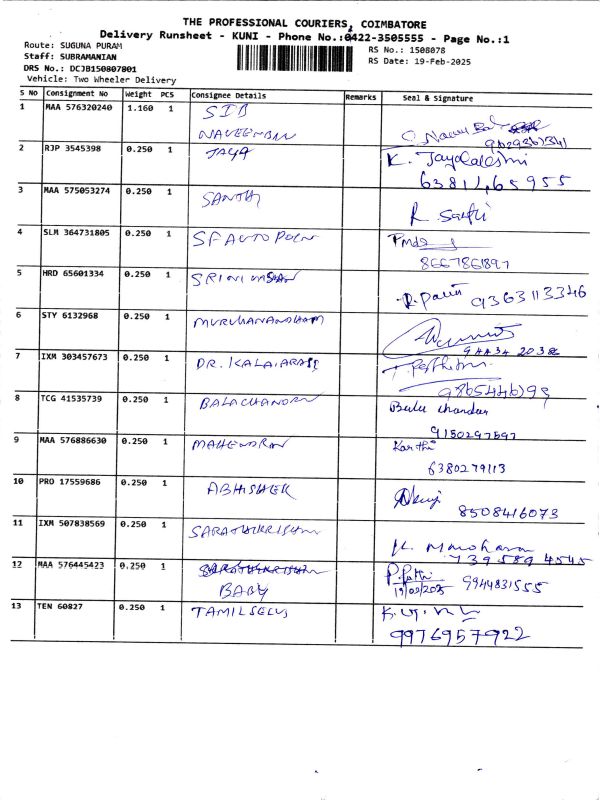 THE PROFESSIONAL COURIERS, COIMBATORE
Delivery Runsheet - KUNI - Phone No.:0422-3505555 - Page No.:1
Route: SUGUNA PURAM
RS No.: 1508078
Staff: SUBRAMANIAN
RS Date: 19-Feb-2025
DRS No.: DCJB150807801
Vehicle: Two Wheeler Delivery
S No Consignment No Weight PCS Consignee Details Remarks Seal & Signature
1 MAA 576320240 1.160 1 SIB
NAVEENBAN
2 RJP 3545398 0.250 1 JAYA K. Jayalakshmi
63811,65955
3 MAA 575053274 0.250 1 SANTHI
R. Santhi
4 SLM 364731805 0.250 1 SFAUTO POLN
8667861897
5 HRD 65601334 0.250 1 SRINIVASAN
9363113346
6 STY 6132968 0.250 1 MURUHANANDHAM
7 IXM 303457673 0.250 1 DR. KALAIARASI
8 TCG 41535739 0.250 1 BALACHANDRN Balu chandar
9150297597
9 MAA 576886630 0.250 1 MAHENDRAN Karthi
6380279113
10 PRO 17559686 0.250 1 ABHISHEK
8508416073
11 IXM 507838569 0.250 1 SARATHKRISHN
K. Manoharan
739589 4545
12 MAA 576445423 0.250 1
BABY 19/02/2025 9944831555
13 TEN 60827 0.250 1 TAMILSELVI
9976957922